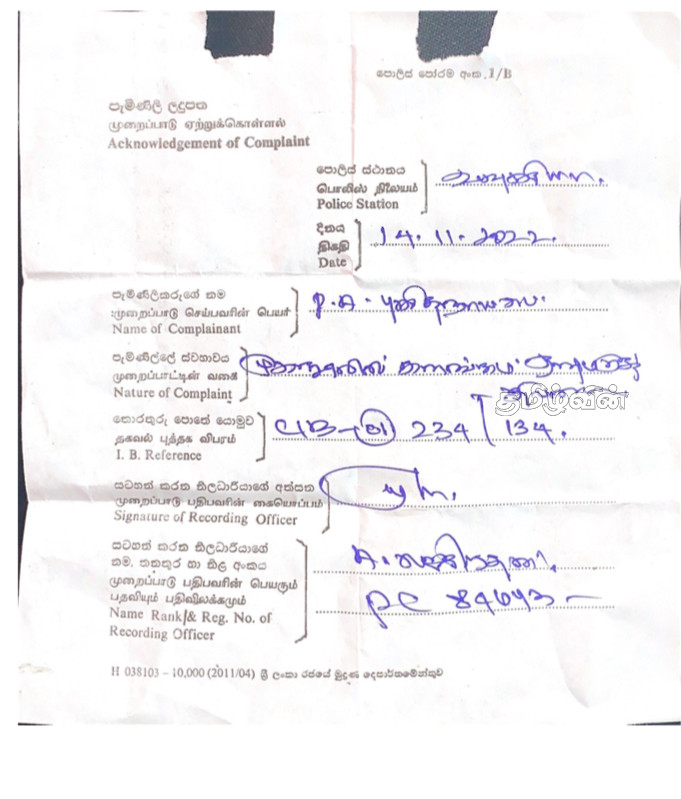 පොලිස් පෝරම අංක. 1/B
පැමිණිලි ලදුපත
முறைப்பாடு ஏற்றுக்கொள்ளல்
Acknowledgement of Complaint
පොලිස් ස්ථානය
பொலிஸ் நிலையம்
Police Station
දිනය
திகதி
Date
14.11.2022.
පැමිණිලිකරුගේ නම
முறைப்பாடு செய்பவரின் பெயர்
Name of Complainant
P.A.
පැමිණිල්ලේ ස්වභාවය
முறைப்பாட்டின் வகை
Nature of Complaint
தமிழ்வின்
තොරතුරු පොතේ යොමුව
தகவல் புத்தக விபரம்
I. B. Reference
CIB 234 / 134.
සටහන් කරන නිලධාරියාගේ අත්සන
முறைப்பாடு பதிபவரின் கையொப்பம்
Signature of Recording Officer
සටහන් කරන නිලධාරියාගේ
නම, තනතුර හා නිල අංකය
முறைப்பாடு பதிபவரின் பெயரும்
பதவியும் பதிவிலக்கமும்
Name Rank/& Reg. No. of
Recording Officer
A.
PC
H 038103 – 10,000 (2011/04) ශ්‍රී ලංකා රජයේ මුද්‍රණ දෙපාර්තමේන්තුව